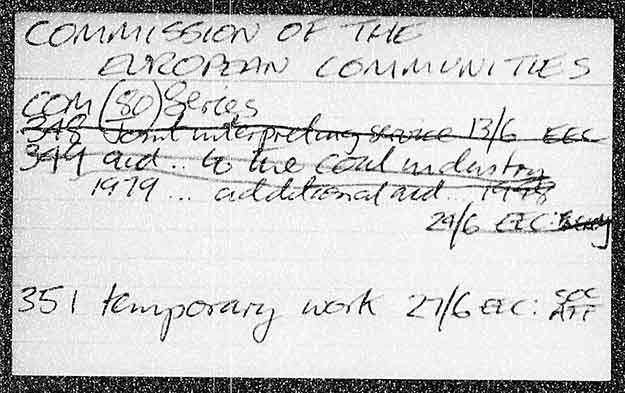 COMMISSION OF THE
EUROPEAN COMMUNITIES
COM (80) Series
348 Joint interpreting service 13/6 EEC
349 aid .. to the coal industry
1979 ... additional aid .. 1978
24/6 EEC:
351 temporary work 27/6 EEC: SOC AFF